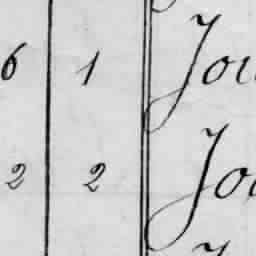 6 1 Jou
2 2 Jo